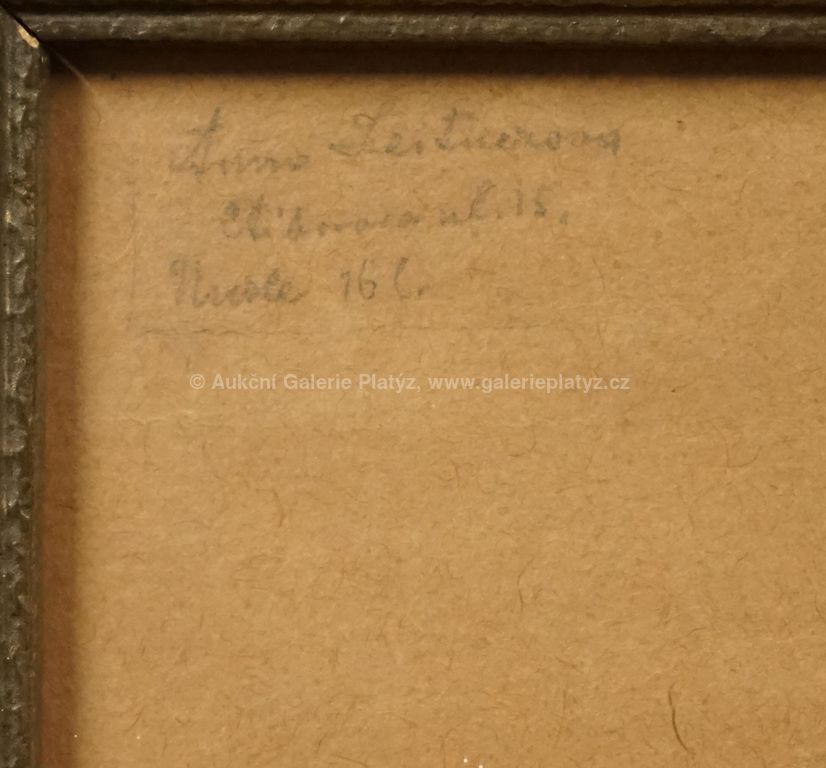 Anna Leitnerova
ul. 15.
Nusle 166.
© Aukční Galerie Platýz, www.galerieplatyz.cz